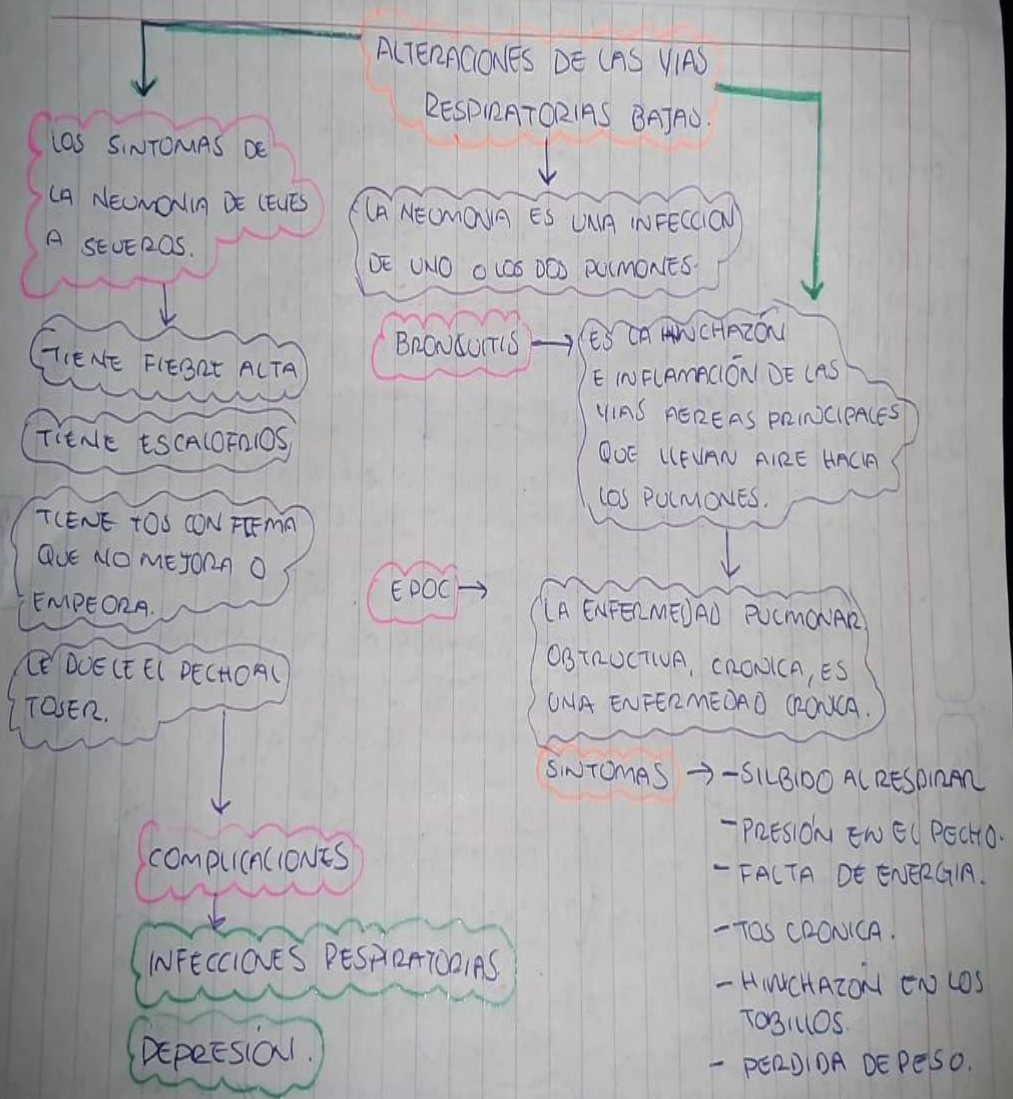 ALTERACIONES DE LAS VIAS
RESPIRATORIAS BAJAS.
LOS SINTOMAS DE
LA NEUMONIA DE LEVES
A SEVEROS.
TIENE FIEBRE ALTA
TIENE ESCALOFRIOS
TIENE TOS CON FLEMA
QUE NO MEJORA O
EMPEORA.
LE DUELE EL PECHO AL
TOSER.
COMPLICACIONES
INFECCIONES RESPIRATORIAS.
DEPRESIÓN.
LA NEUMONIA ES UNA INFECCION
DE UNO O LOS DOS PULMONES.
BRONQUITIS
ES LA HINCHAZÓN
E INFLAMACIÓN DE LAS
VIAS AEREAS PRINCIPALES
QUE LLEVAN AIRE HACIA
LOS PULMONES.
EPOC
LA ENFERMEDAD PULMONAR
OBTRUCTIVA, CRONICA, ES
UNA ENFERMEDAD CRONICA.
SINTOMAS → - SILBIDO AL RESPIRAR
- PRESIÓN EN EL PECHO.
- FALTA DE ENERGIA.
- TOS CRONICA.
- HINCHAZÓN EN LOS
TOBILLOS.
- PERDIDA DE PESO.